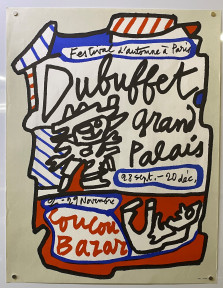 Festival d'automne à Paris
Dubuffet
grand
Palais
28 sept. - 20 déc.
Novembre
Coucou
Bazar